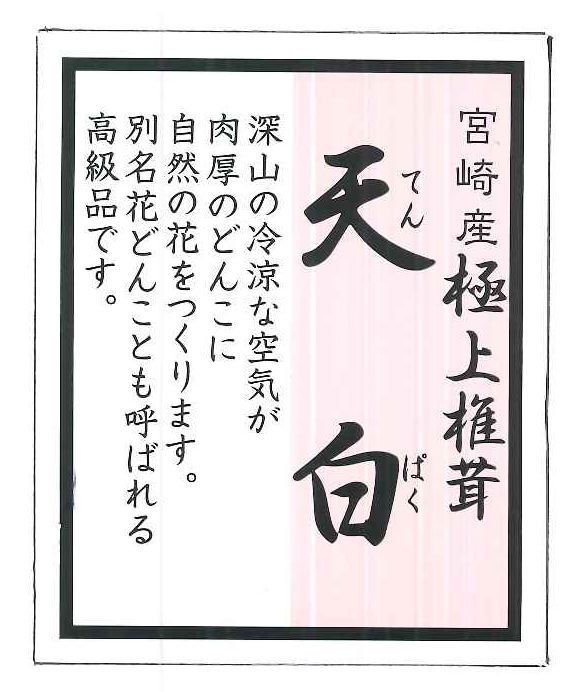 宮崎産極上椎茸
天白
てんぱく
深山の冷涼な空気が
肉厚のどんこに
自然の花をつくります。
別名花どんことも呼ばれる
高級品です。